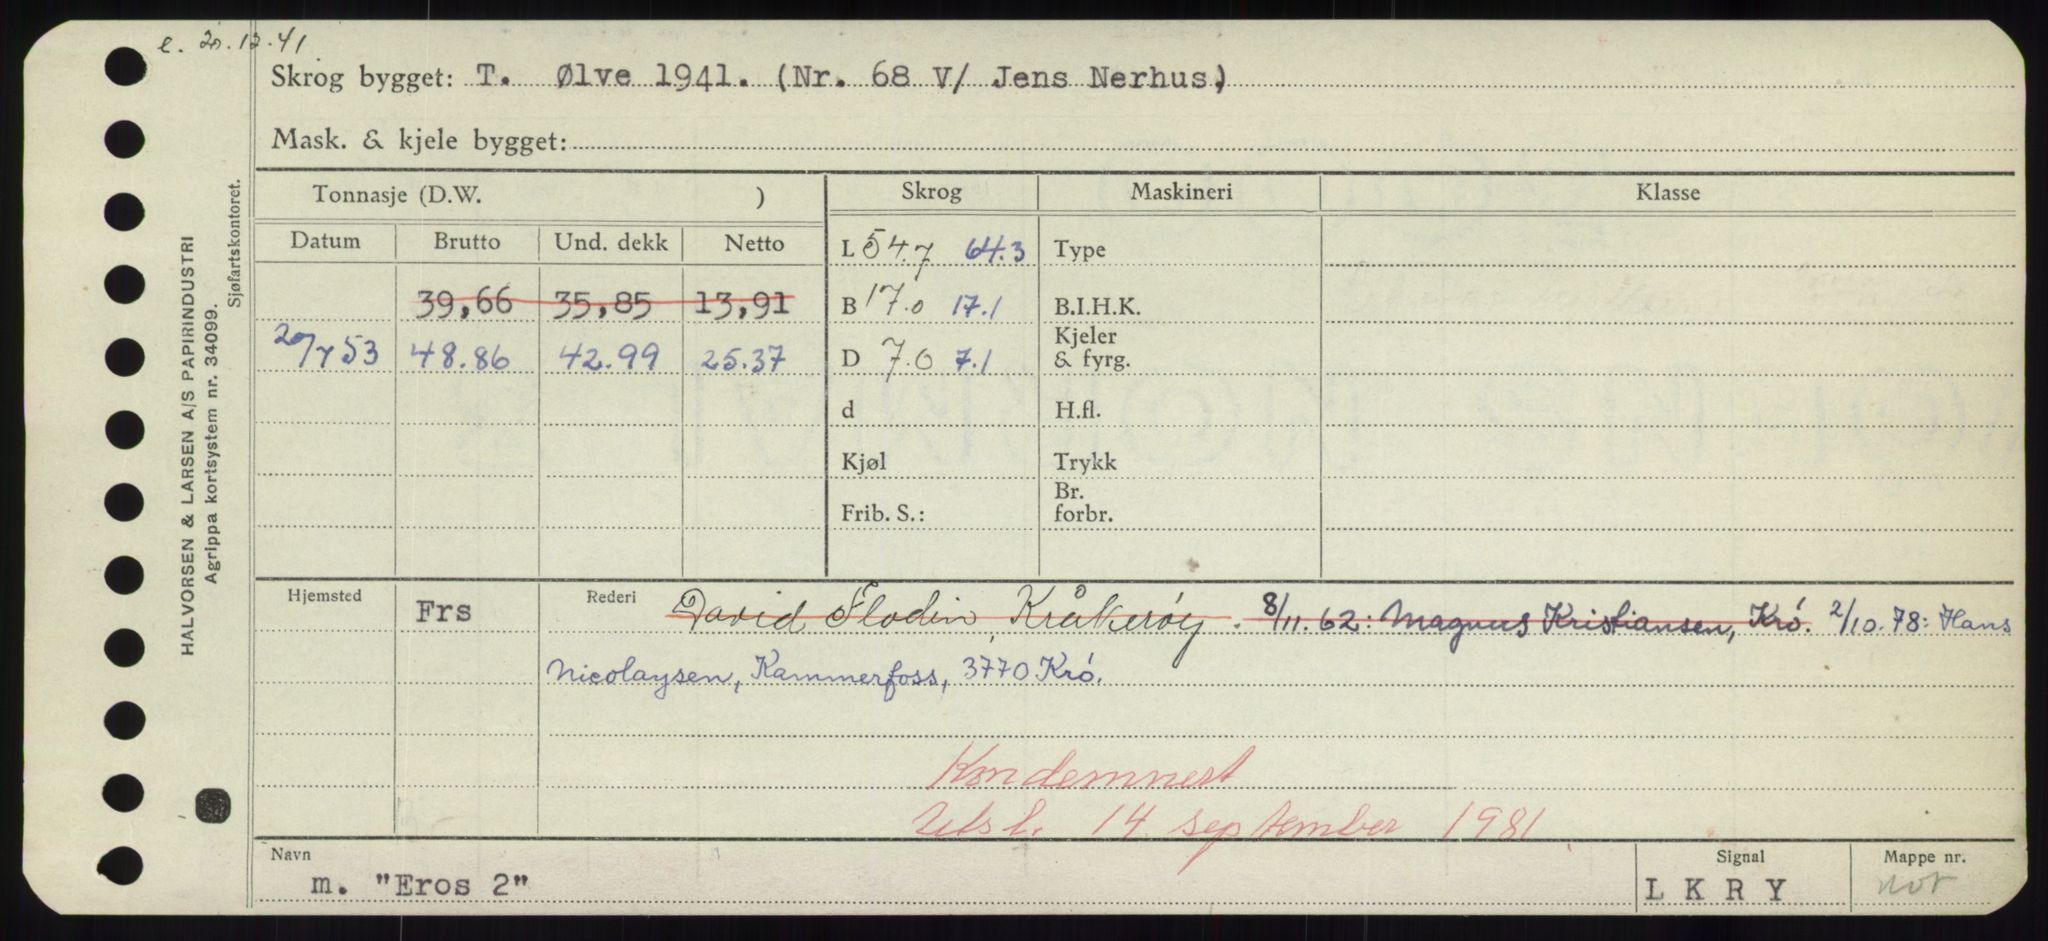 e. 20.12.41
Skrog bygget: T. Ølve 1941. (Nr. 68 V/ Jens Nerhus)
Mask. & kjele bygget:
Tonnasje (D.W. ) Skrog Maskineri Klasse
Datum Brutto Und. dekk Netto L 54.7 64.3 Type
39,66 35,85 13,91 B 17.0 17.1 B.I.H.K.
20/7 53 48.86 42.99 25.37 D 7.0 7.1 Kjeler & fyrg.
d H.fl.
Kjøl Trykk
Frib. S.: Br. forbr.
Hjemsted Frs Rederi David Flodin, Kråkerøy. 8/11.62: Magnus Kristiansen, Krö. 2/10.78: Hans
Nicolaysen, Kammerfoss, 3770 Krö.
Kondemnert
Utsl. 14 september 1981
Navn Signal Mappe nr.
m. "Eros 2" L K R Y
HALVORSEN & LARSEN A/S PAPIRINDUSTRI
Agrippa kortsystem nr. 34099.
Sjøfartskontoret.